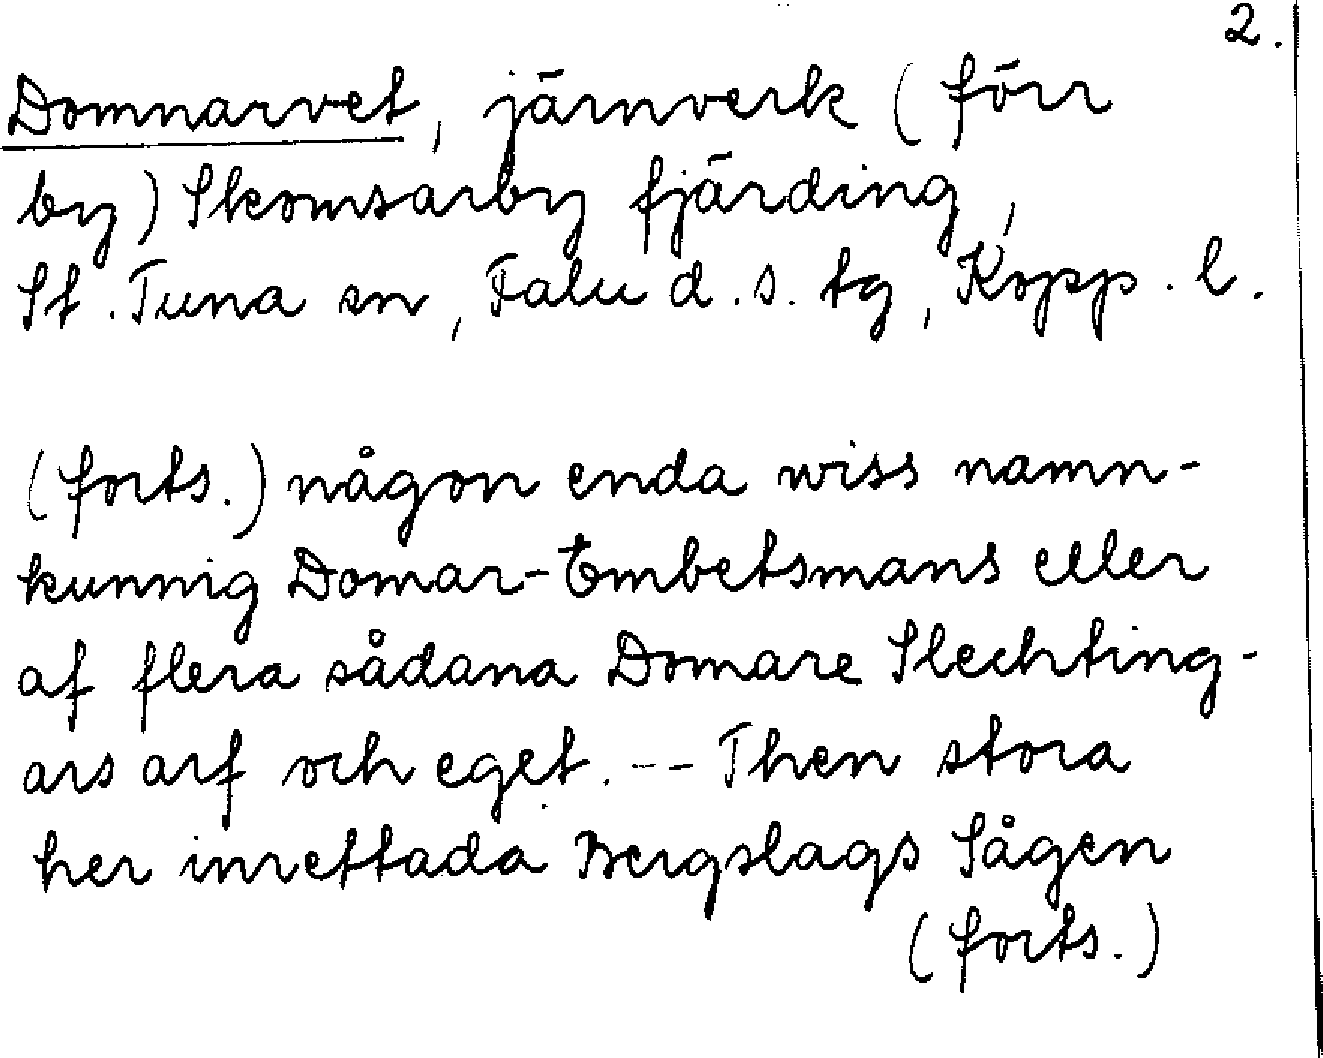 2.
Domnarvet, järnverk (förr
by) Skomsarby fjärding,
St. Tuna sn, Falu d. s. tg, Kopp. l.
(forts.) någon enda wiss namn-
kunnig Domar-Embetsmans eller
af flera sådana Domare Slechting-
ars arf och eget. -- Then stora
her inrettada Bergslags Sågen
(forts.)